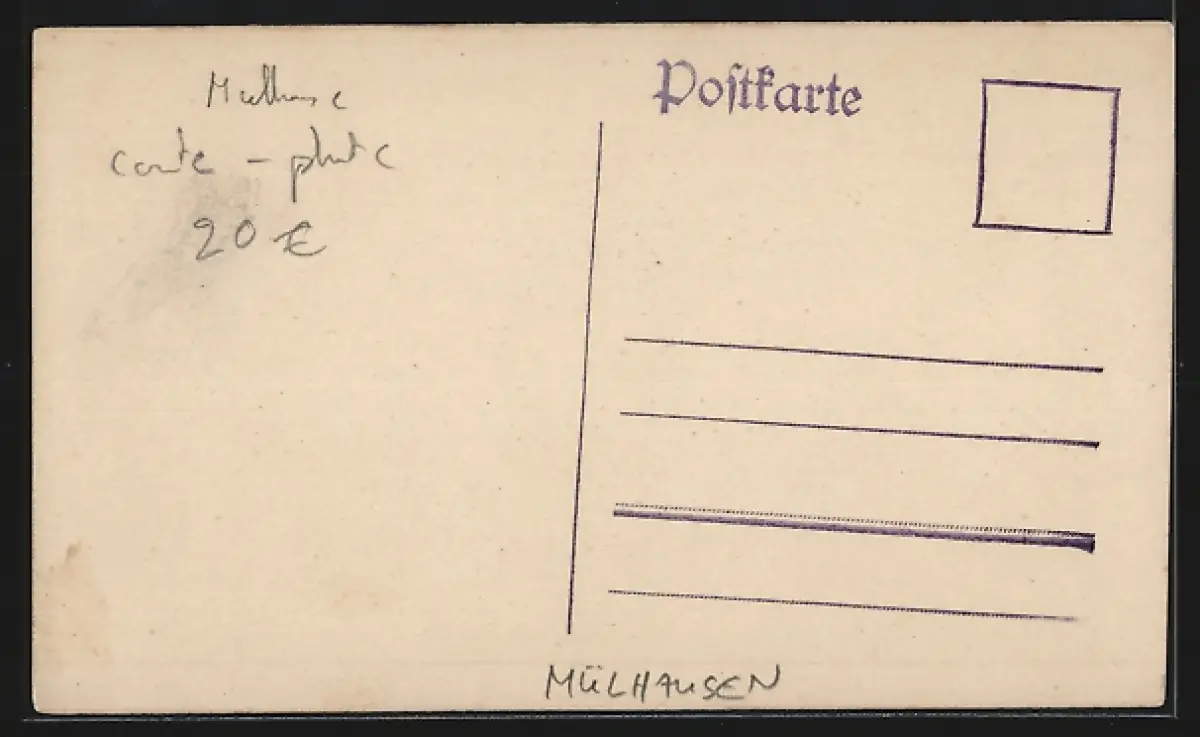 Mulhouse
carte - photo
20 €
Postkarte
MÜLHAUSEN